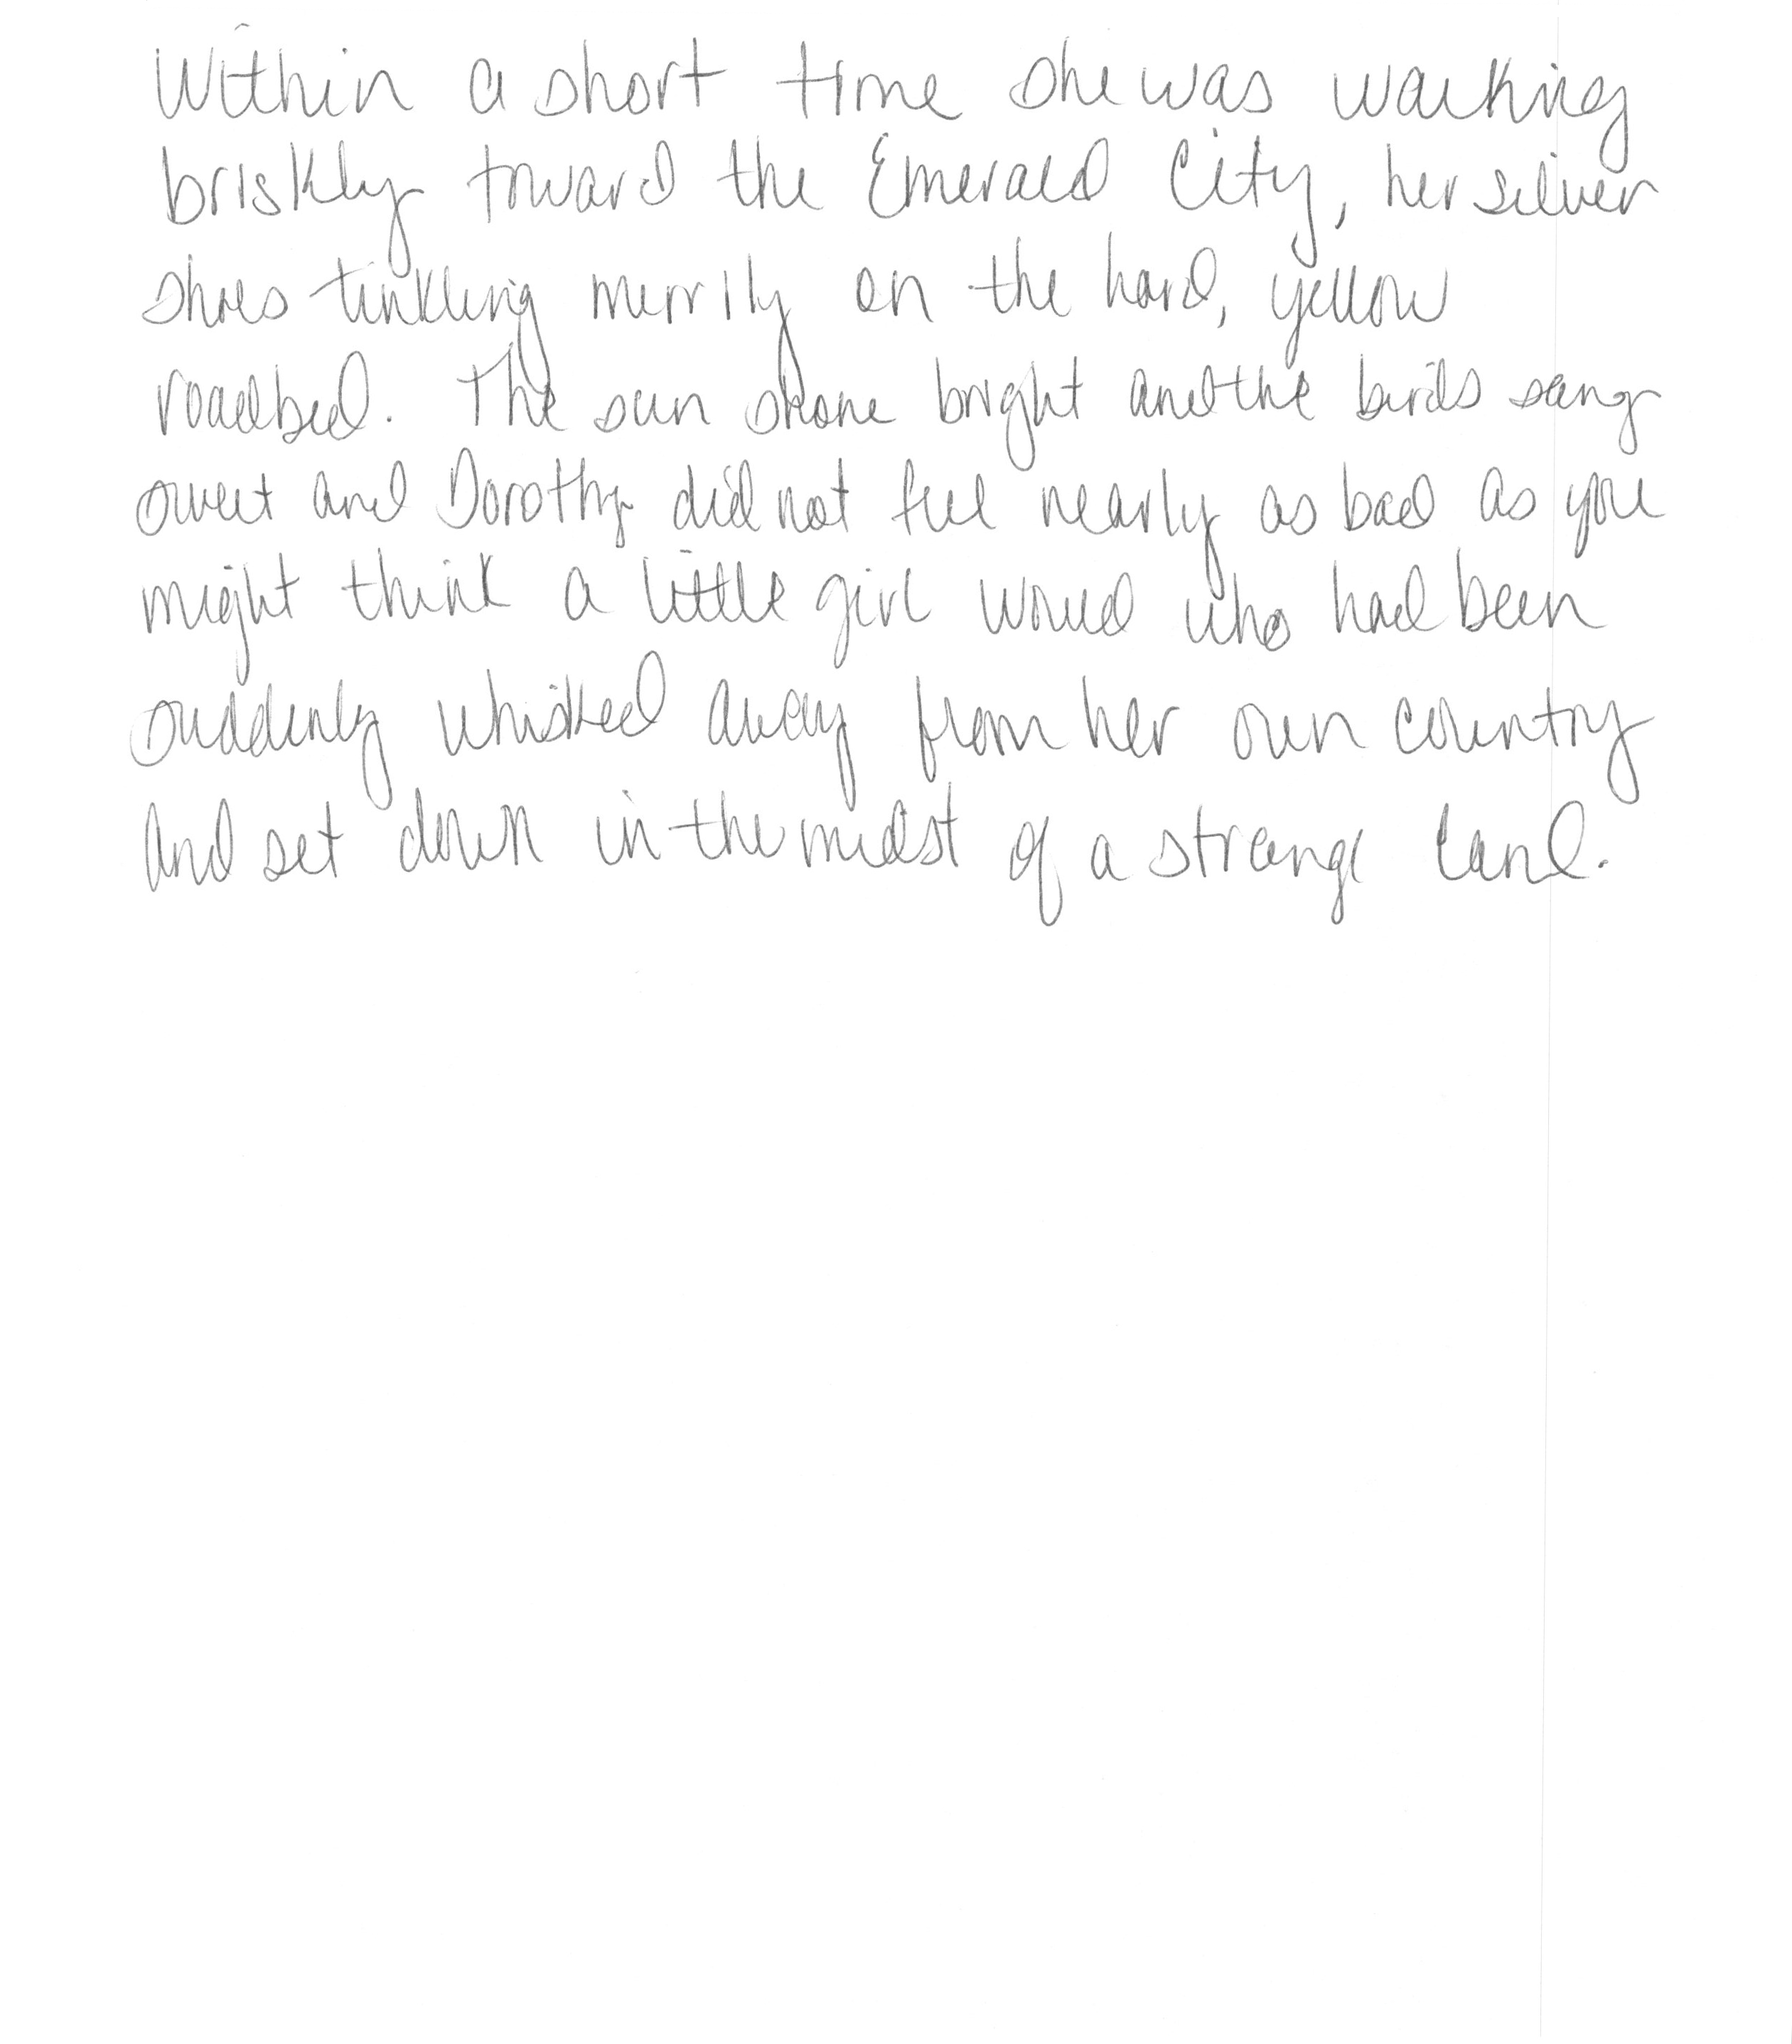 Within a short time she was walking
briskly toward the Emerald City, her silver
shoes tinkling merrily on the hard, yellow
roadbed. The sun shone bright and the birds sang
sweet and Dorothy did not feel nearly as bad as you
might think a little girl would who had been
suddenly whisked away from her own country
and set down in the midst of a strange land.